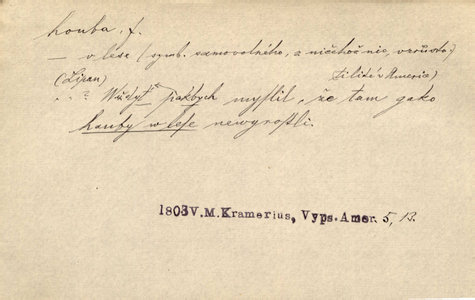 houba, f.
— v lese (symb. samovolného, a ničehož nic, vzrůstu.)
(Lipan) lidí v Americe)
. . ? Wždyť pakbych myslil, že tam gako
hauby w lese newyrostli.
1803 V. M. Kramerius, Vyps. Amer. 5, 13.